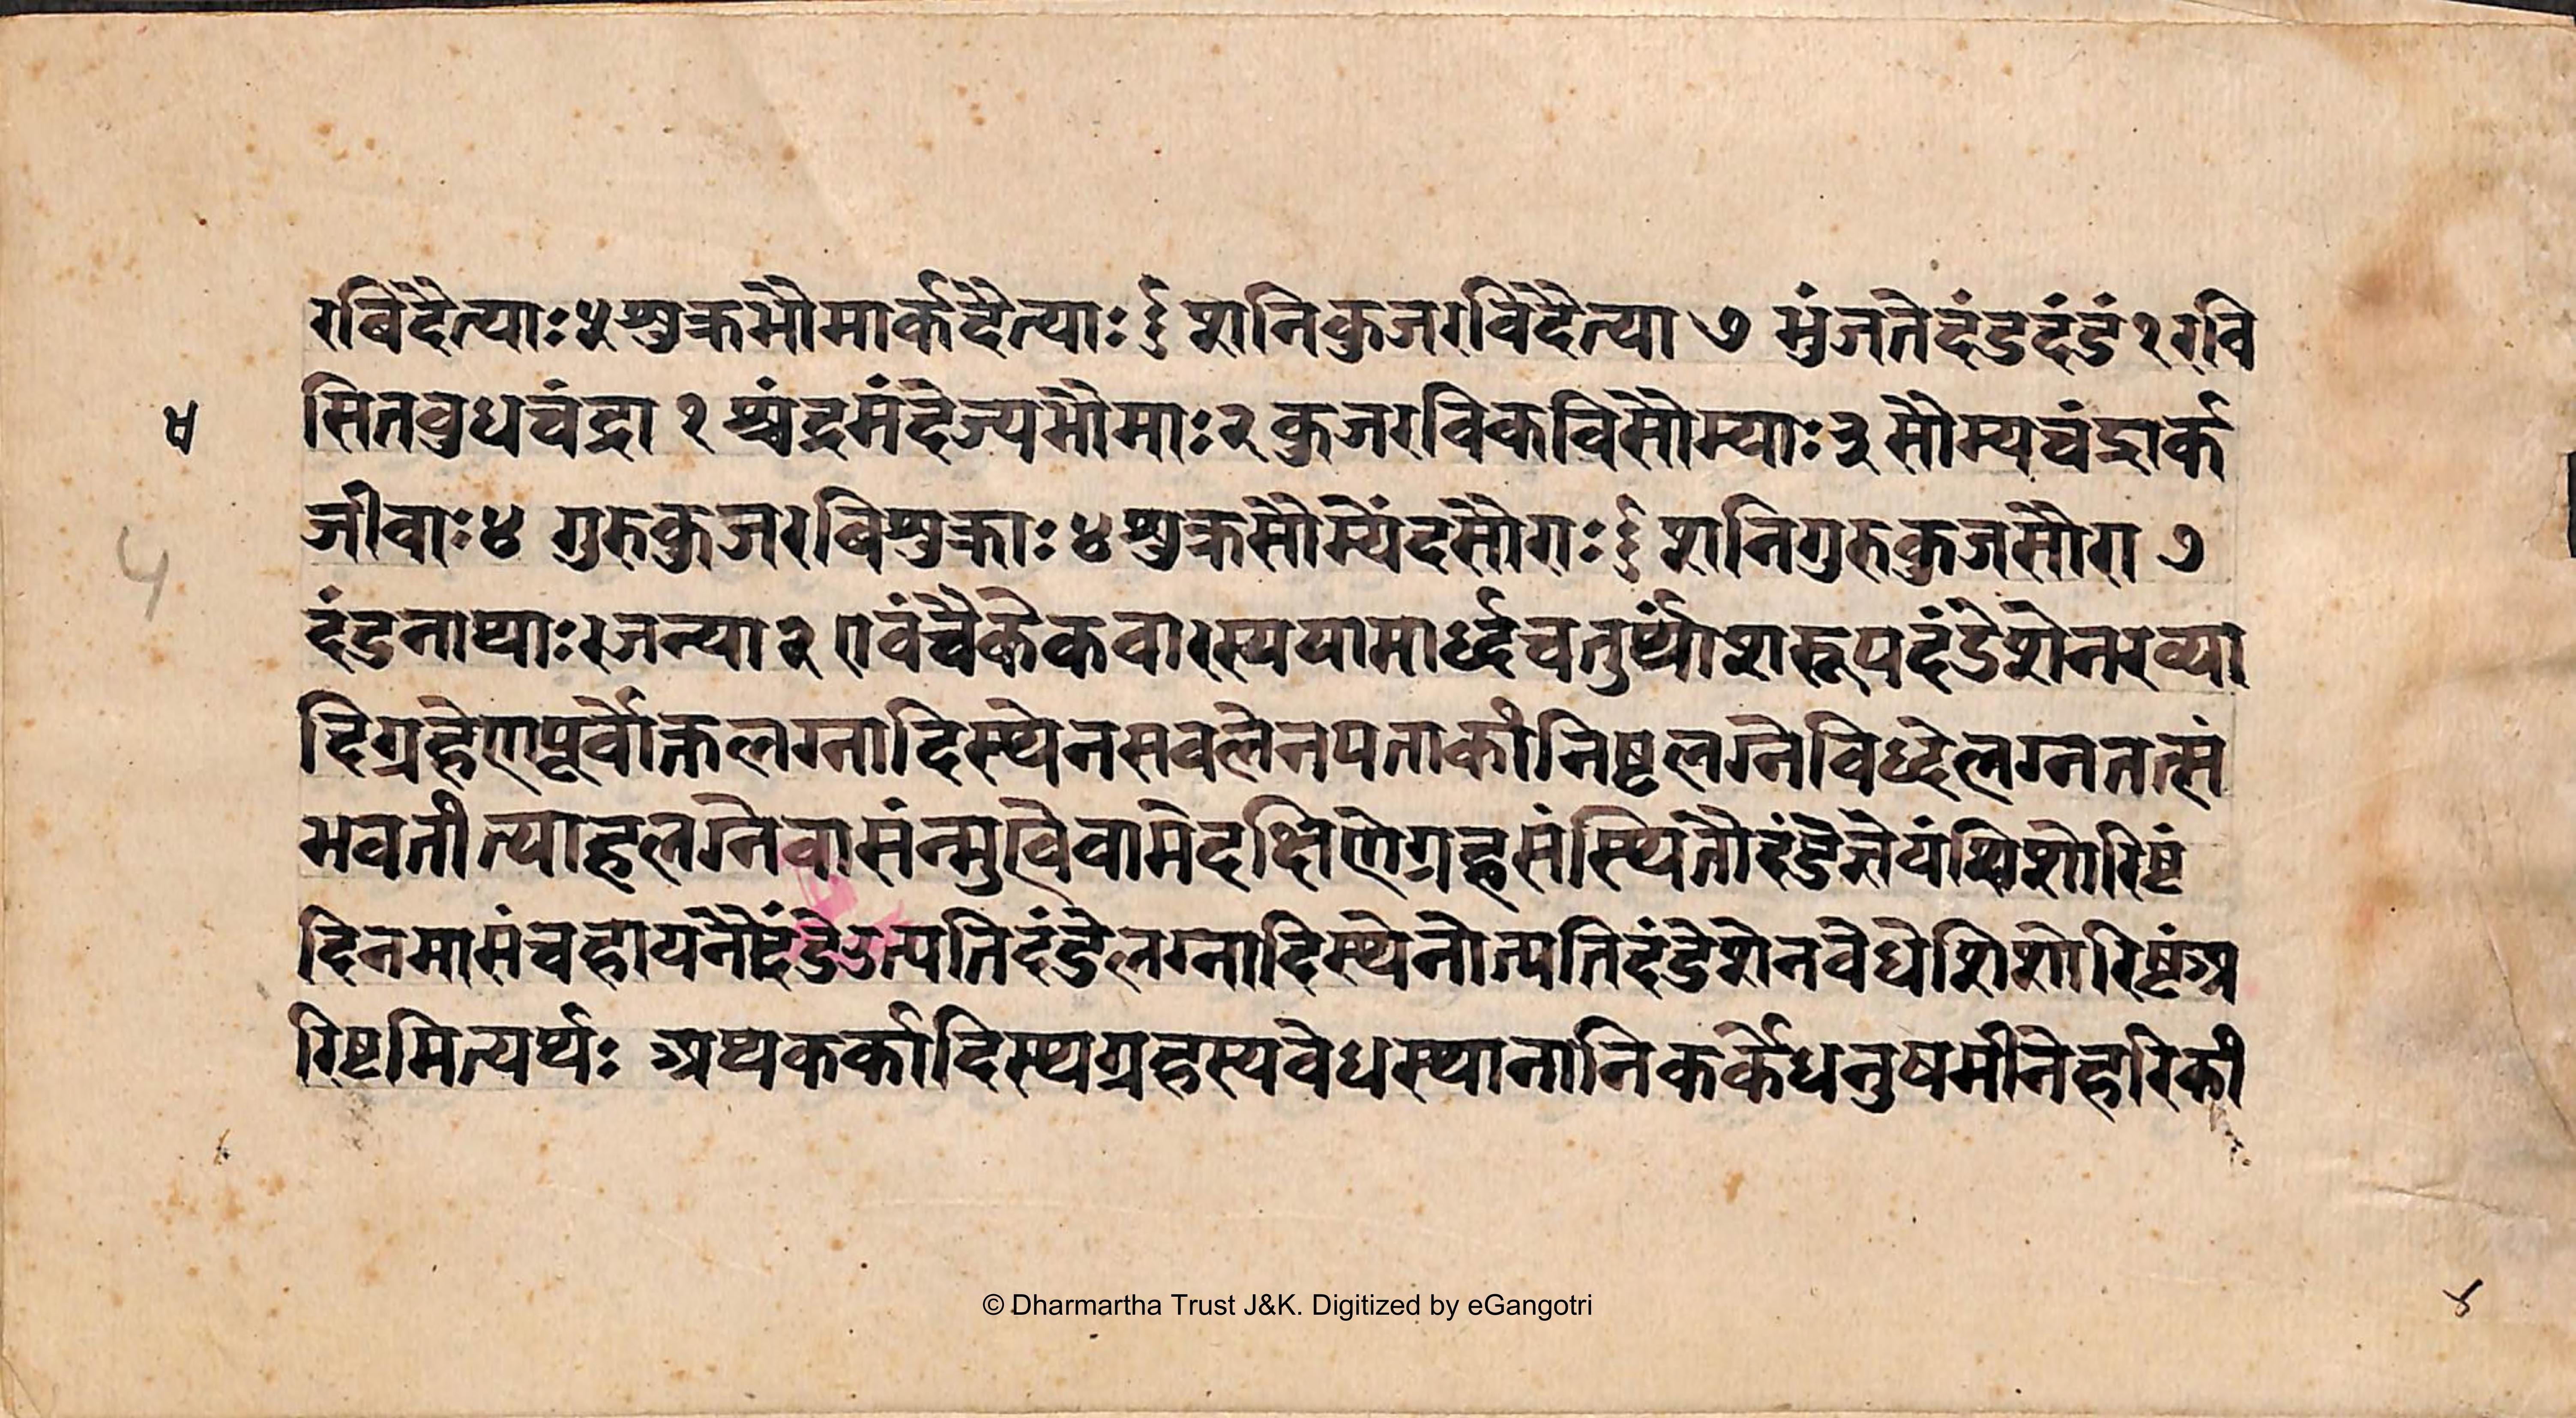 रबिदैत्याः५शुक्रभौमार्कदैत्याः६शनिकुजरविदैत्या ७ भुंजतेदंडदंडं१रवि
सितवुधचंद्रा १ श्चंद्रमंदेज्यभौमाः२कुजरविकविसौम्याः३सौम्यचंद्रार्क
जीवाः४ गुरुकुजरबिशुक्राः४शुक्रसौम्येंदसौराः६शनिगुरुकुजसौरा ७
दंडनाथाःरजन्या२ एवंचैकेकवारस्ययामार्ध्दचतुर्थांशरूपदंडेशेनरव्या
दिग्रहेणपूर्वोक्तलग्नादिस्थेनसवलेनपताकीनिष्टलग्नेविध्देलग्नतत्सं
भवतीत्याहलग्नेवासंन्मुखेवामेदक्षिणेग्रहसंस्थितौदंडेज्ञेयंशिशोरिष्टं
दिनमासंचहायनैदंडेउत्पतिदंडेलग्नादिस्थेनोत्पतिदंडेशेनवेधेशिशोरिष्टंअ
रिष्टमित्यर्थः अथकर्कादिस्थग्रहस्यवेधस्थानानिकर्केधनुषमीनेहरिकी
५
© Dharmartha Trust J&K. Digitized by eGangotri